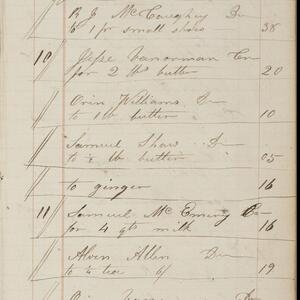 R J McCaughey Dr
to 1 pr small shoes 38
10 Jesse Vanorman Cr
for 2 lbs butter 20
Orin Williams Dr
to 1 lb butter 10
Samuel Shaw Dr
to ½ lb butter 05
to ginger 16
11 Samuel McEmery Cr
for 4 qts milk 16
Alven Allen Dr
to ¼ tea 6/ 19